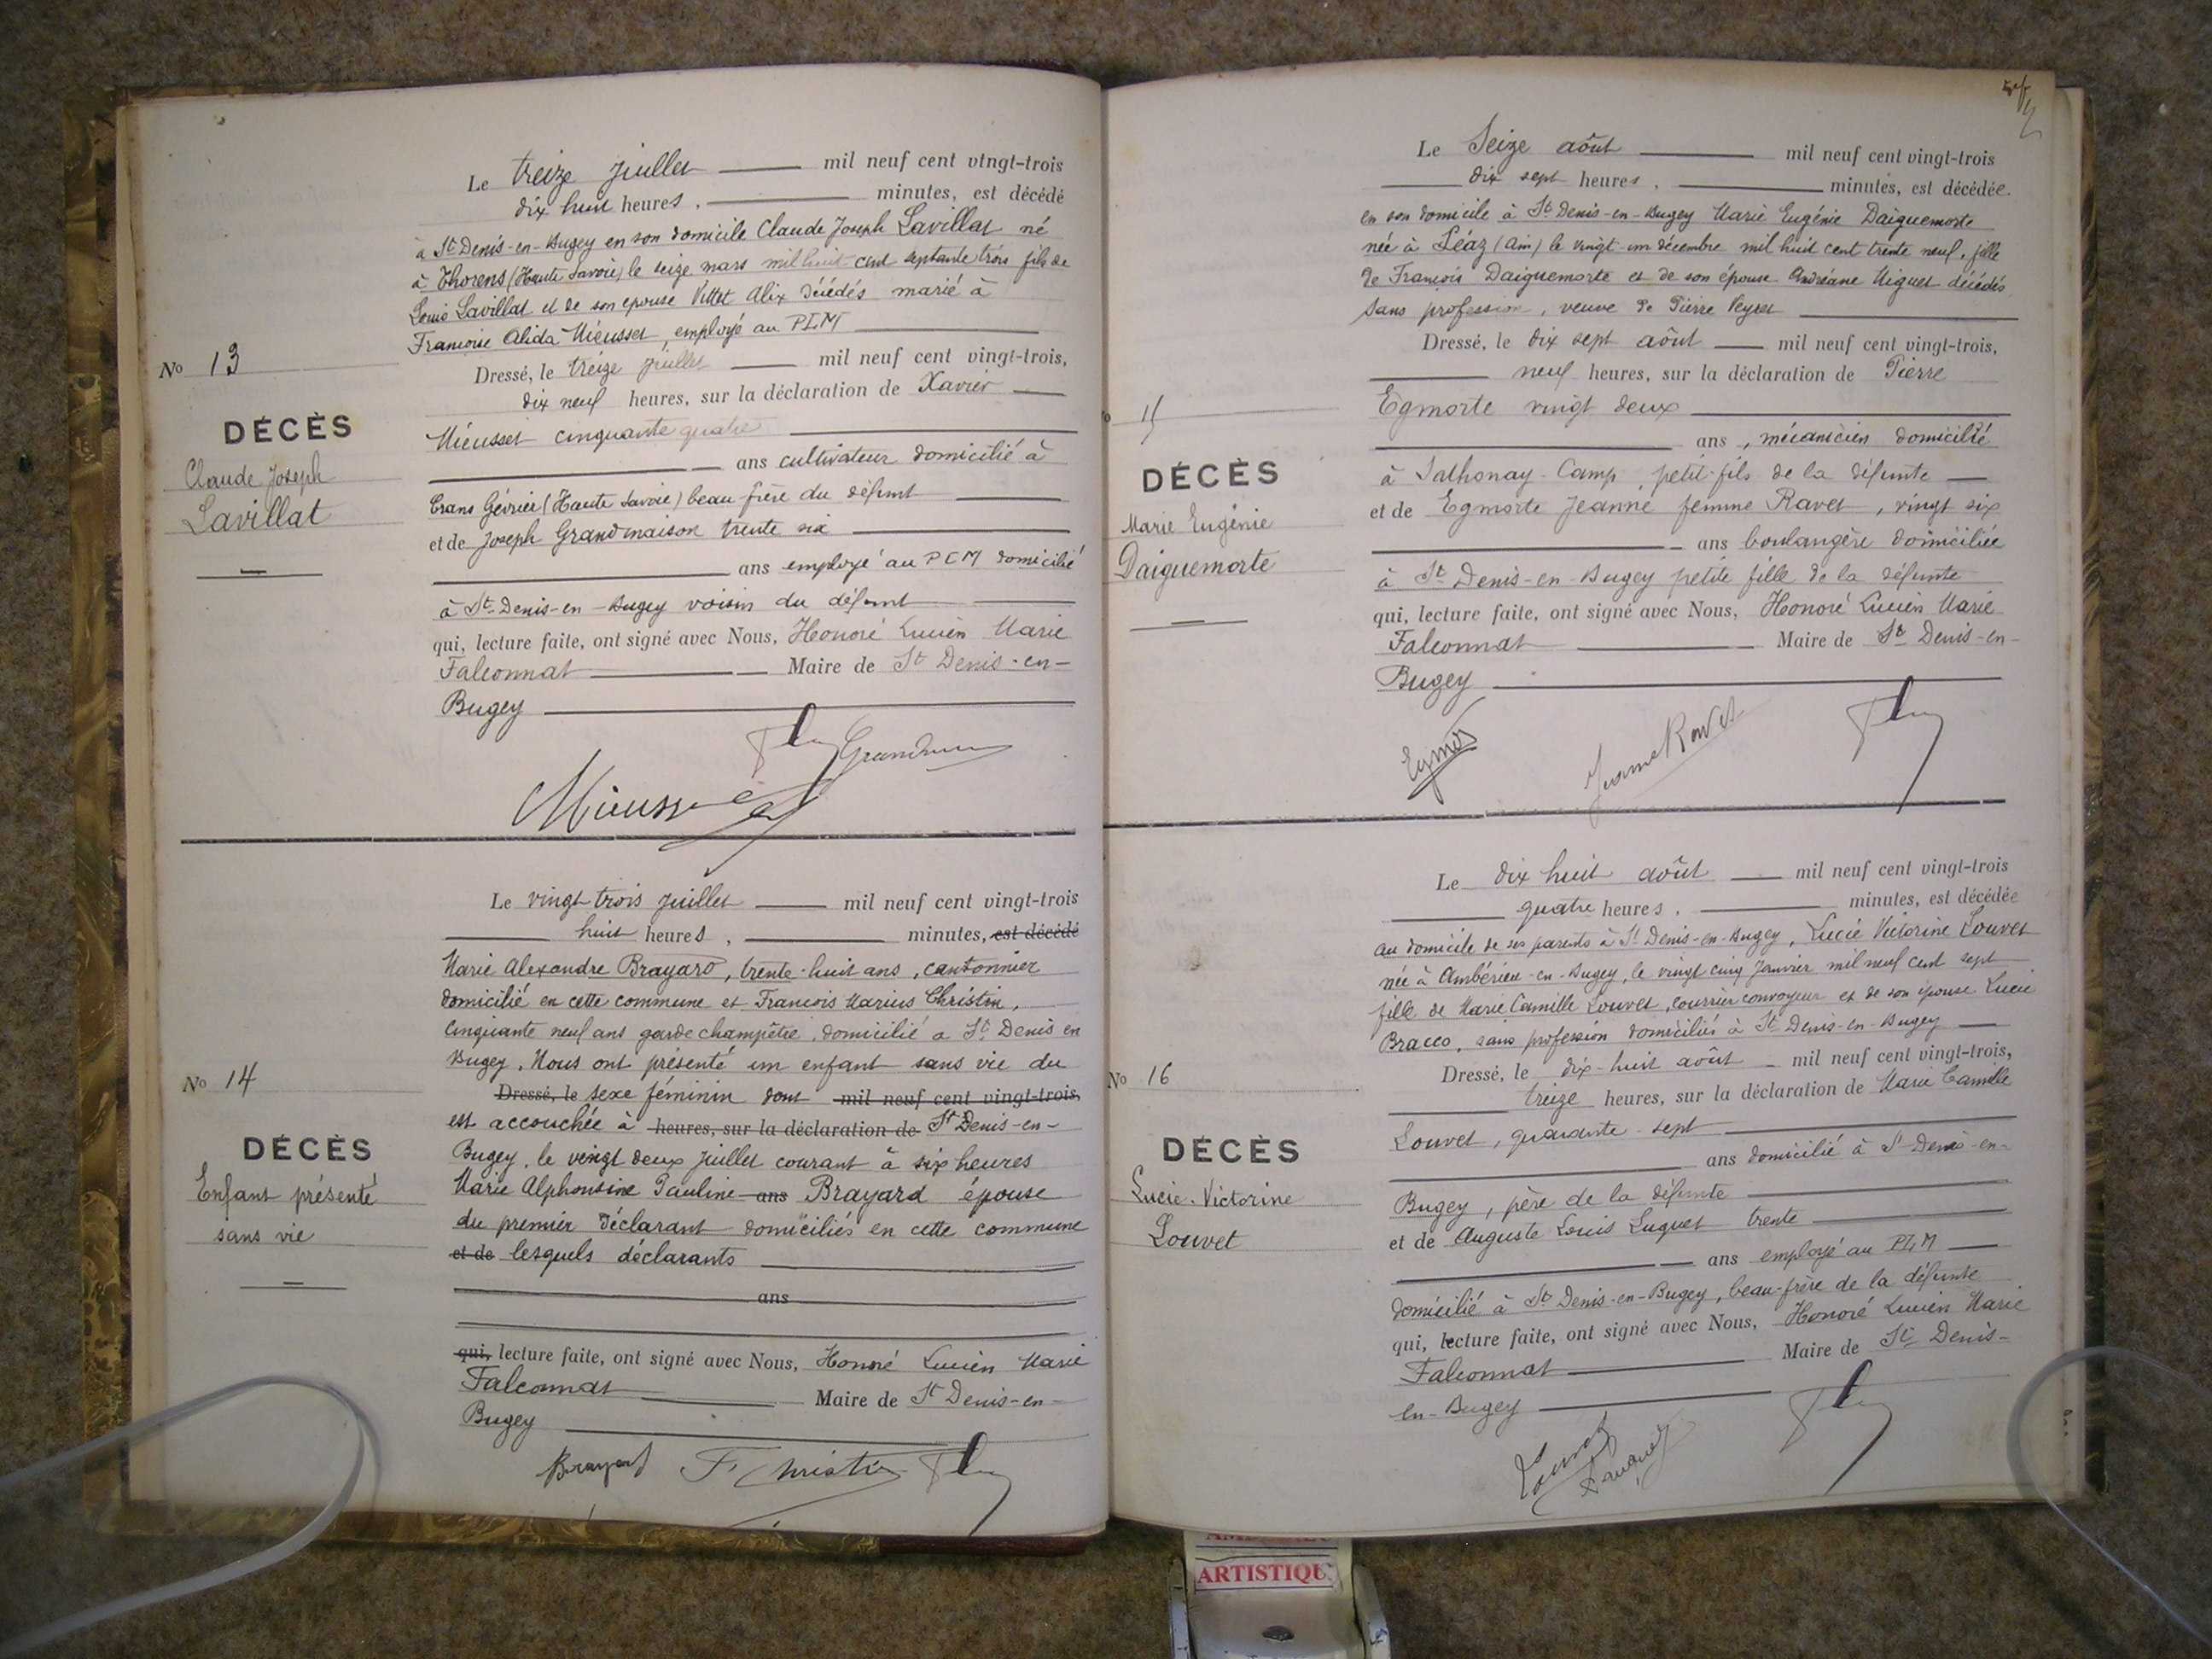 Le treize juillet mil neuf cent vingt-trois
dix huit heures, minutes, est décédé
à St Denis-en-Bugey en son domicile Claude Joseph Lavillat né
à Thorens (Haute Savoie) le seize mars mil huit cent septante trois fils de
Louis Lavillat et de son épouse Vittet Alix décédés marié à
Françoise Alida Miéusset, employé au PLM
No 13
Dressé, le treize juillet mil neuf cent vingt-trois,
dix neuf heures, sur la déclaration de Xavier
DÉCÈS
Miéusset cinquante quatre
Claude Joseph
ans cultivateur domicilié à
Lavillat
Crans Gévrier (Haute Savoie) beau frère du défunt
et de Joseph Grandmaison trente six
ans employé au PLM domicilié
à St-Denis-en-Bugey voisin du défunt
qui, lecture faite, ont signé avec Nous, Honoré Lucien Marie
Falconnat Maire de St Denis-en-
Bugey
Miéusset
Le vingt trois juillet mil neuf cent vingt-trois
huit heures, minutes, est décédé
Marie Alexandre Brayard, trente-huit ans, cantonnier
domicilié en cette commune et François Marius Christin,
cinquante neuf ans garde champêtre, domicilié a St Denis en
Bugey. Nous ont présenté un enfant sans vie du
No 14
Dressé, le sexe féminin dont mil neuf cent vingt-trois,
est accouchée à heures, sur la déclaration de St Denis-en-
DÉCÈS
Bugey, le vingt deux juillet courant à six heures
Enfant présenté
sans vie
Marie Alphonsine Pauline ans Brayard épouse
du premier déclarant domiciliés en cette commune
et de lesquels déclarants
ans
qui, lecture faite, ont signé avec Nous, Honoré Lucien Marie
Falconnat Maire de St Denis-en-
Bugey
Brayard F. Christin
Le Seize août mil neuf cent vingt-trois
dix sept heures, minutes, est décédée
en son domicile à St Denis-en-Bugey Marie Eugénie Daiguemorte
née à Léaz (Ain) le vingt-un décembre mil huit cent trente neuf, fille
de François Daiguemorte et de son épouse Andréane Miguet décédés
sans profession, veuve de Pierre Peyret
Dressé, le dix sept août mil neuf cent vingt-trois,
neuf heures, sur la déclaration de Pierre
15
Egmorte vingt deux
ans, mécanicien domicilié
DÉCÈS
à Sathonay-Camp, petit-fils de la défunte
Marie Eugénie
Daiguemorte
et de Egmorte Jeanne femme Ravet, vingt six
ans boulangère domiciliée
à St Denis-en-Bugey petite fille de la défunte
qui, lecture faite, ont signé avec Nous, Honoré Lucien Marie
Falconnat Maire de St Denis-en-
Bugey
Jeanne Ravet
Le dix huit août mil neuf cent vingt-trois
quatre heures, minutes, est décédée
au domicile de ses parents à St Denis-en-Bugey, Lucie Victorine Louvet
née à Ambérieu-en-Bugey, le vingt cinq Janvier mil neuf cent sept
fille de Marie Camille Louvet, courrier convoyeur et de son épouse Lucie
Bracco, sans profession domiciliés à St Denis-en-Bugey
No 16
Dressé, le dix-huit août mil neuf cent vingt-trois,
treize heures, sur la déclaration de Marie Camille
DÉCÈS
Louvet, quarante-sept
ans domicilié à St Denis-en-
Lucie-Victorine
Louvet
Bugey, père de la défunte
et de Auguste Louis Luguet trente
ans employé au PLM
domicilié à St Denis-en-Bugey, beau-frère de la défunte
qui, lecture faite, ont signé avec Nous, Honoré Lucien Marie
Falconnat Maire de St Denis-
en-Bugey
ARTISTIQU